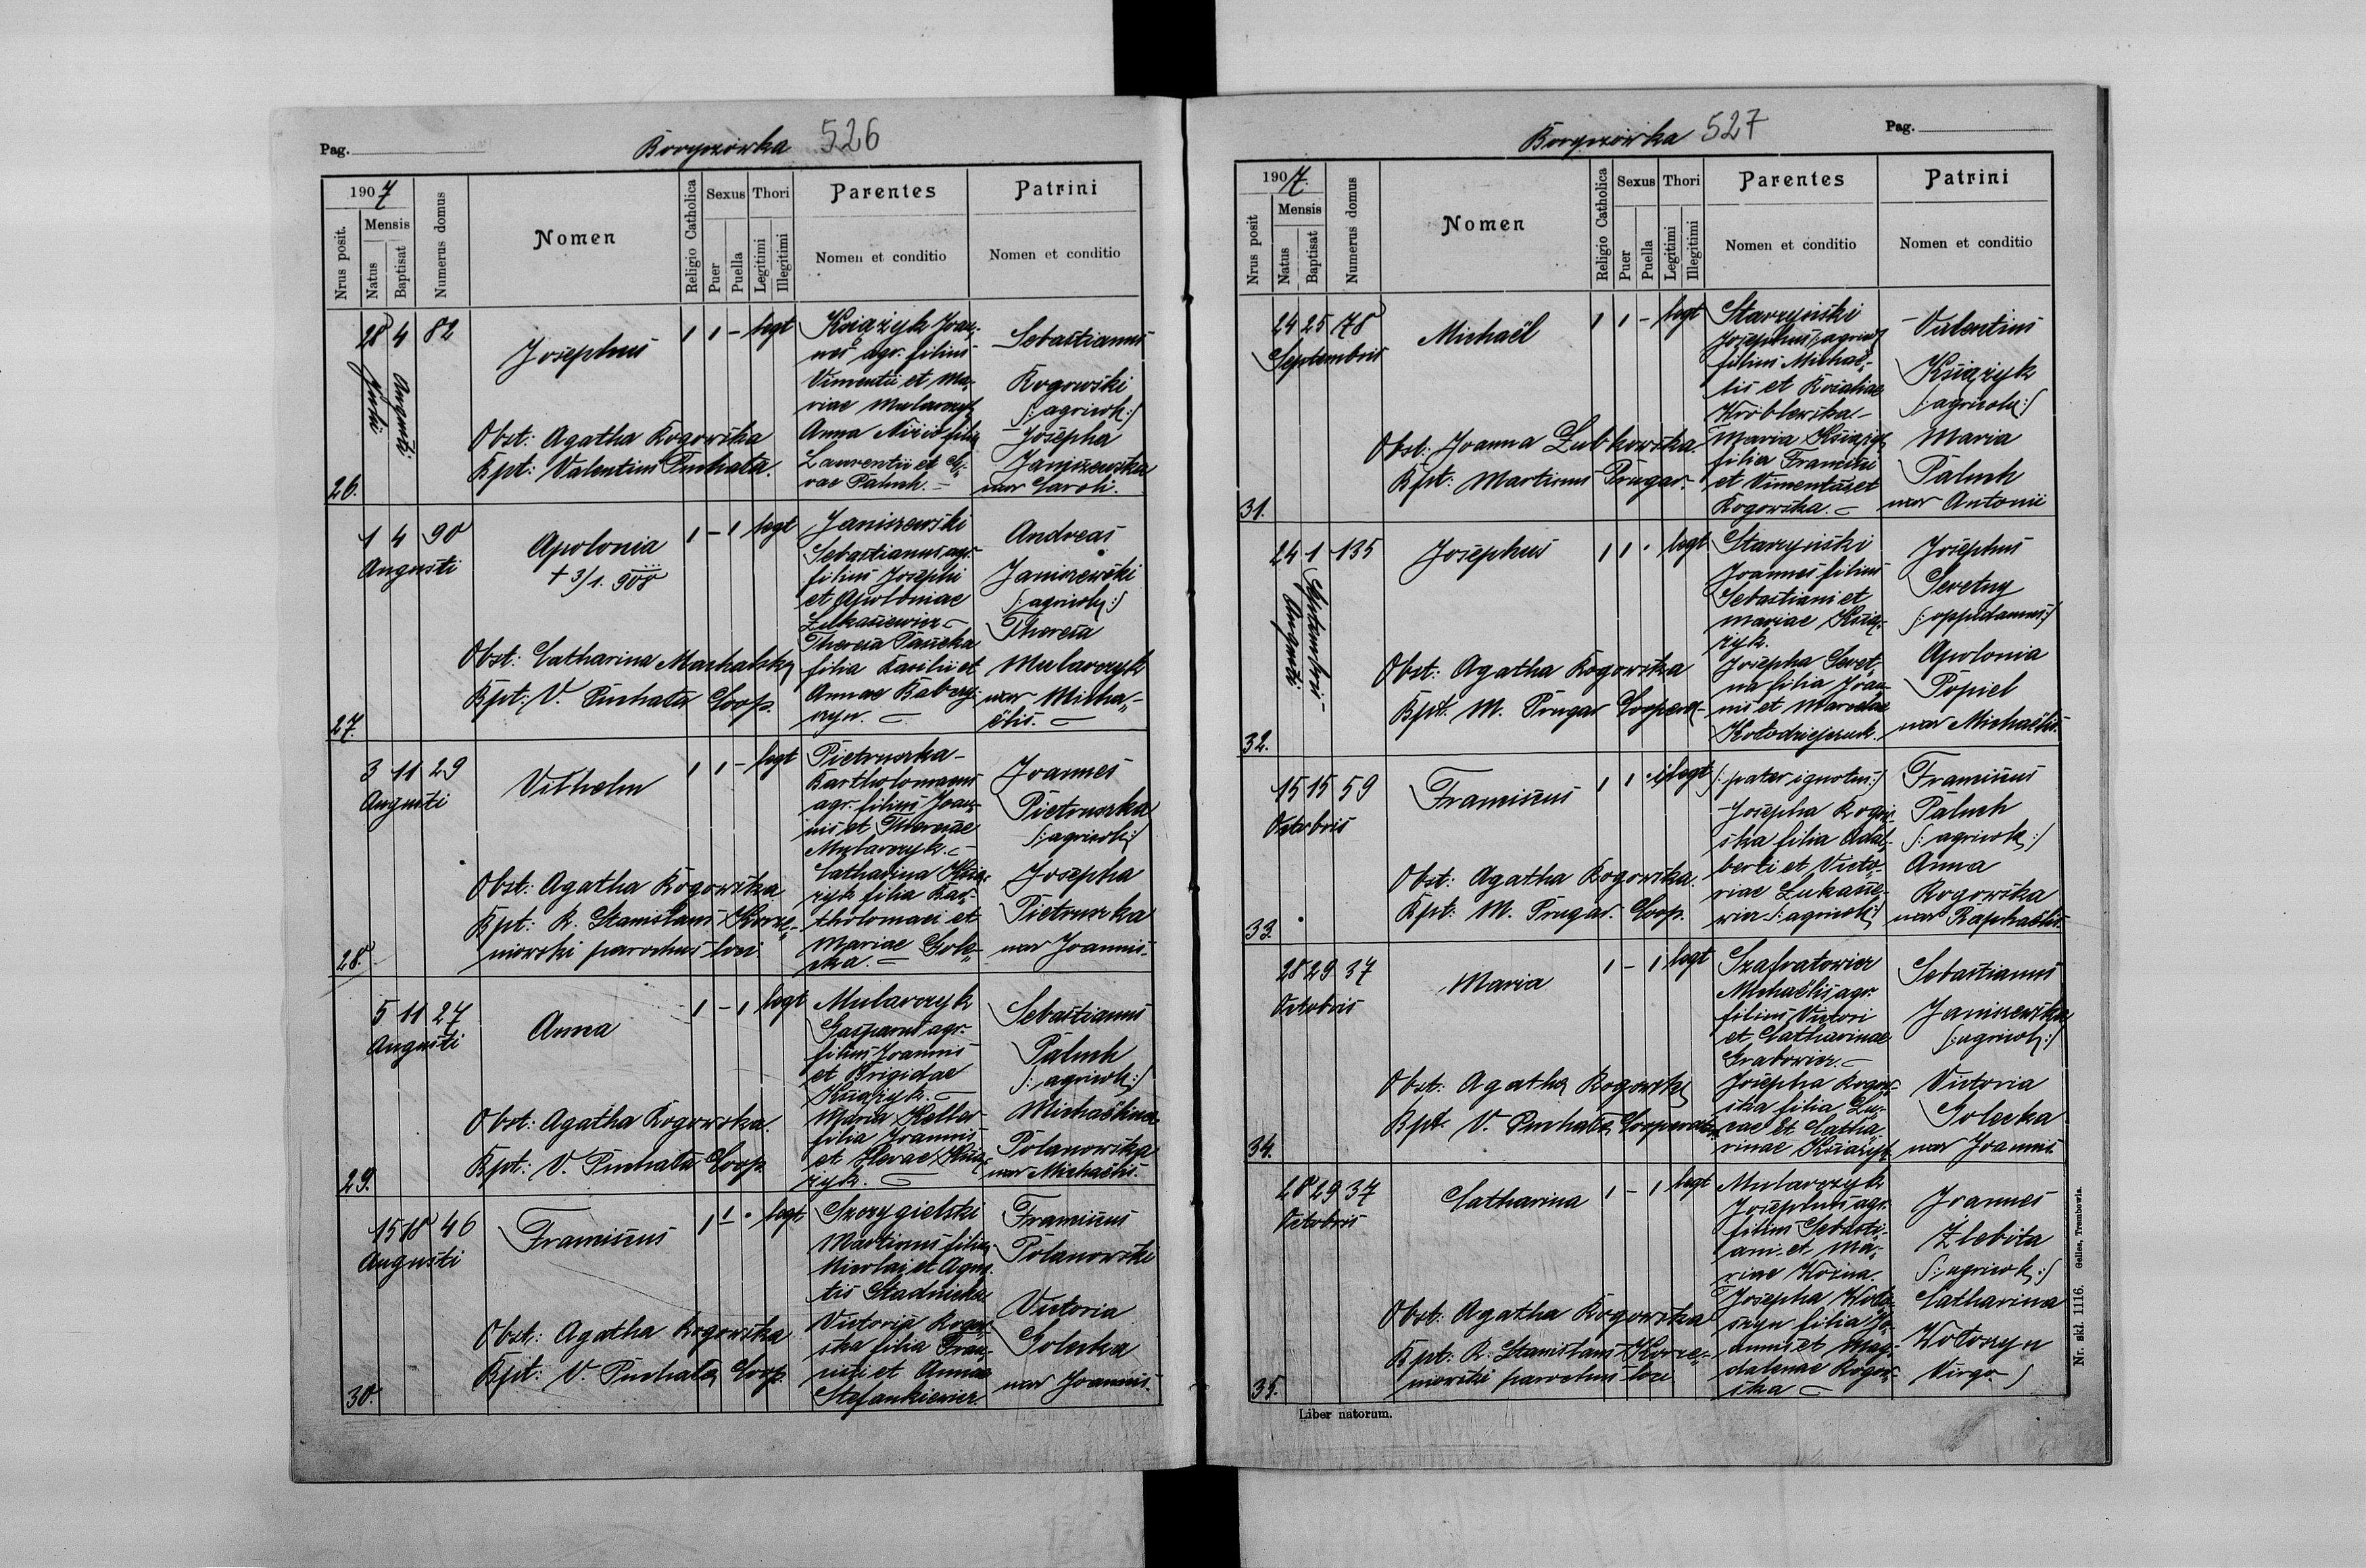 Pag.
Boryczówka 526
1907
Nrus posit.
Mensis
Natus
Baptisat
Numerus domus
Nomen
Religio Catholica
Sexus
Puer
Puella
Thori
Legitimi
Illegitimi
Parentes
Nomen et conditio
Patrini
Nomen et conditio
26.
28 4 82
Julii
Augusti
Josephus
Obst: Agatha Rogowska
Bpt: Valentinus Puchała.
1 1 - legt
Książyk Joan-
nes agr. filius
Vincentii et Ma-
riae Mularczyk
Anna Nizio filia
Laurentii et
Paluch. -
Sebastianus
Rogowski
(: agricola :)
Josepha
Janiszewska
uxor Caroli.
27.
1 4 90
Augusti
Apolonia
+ 3/1. 908
Obst: Catharina Marhalska
Bpt: V. Puchała Coop.
1 - 1 legt
Janiszewski
Sebastianus agr.
filius Josephi
et Apoloniae
Łukasiewicz
Theresia
filia Basilii et
Annae
Andreas
Janiszewski
(: agricola :)
Theresia
Mularczyk
uxor Micha-
ëlis.
28.
3 11 29
Augusti
Vilhelm
Obst: Agatha Rogowska
Bpt: R. Stanislaus Korze-
niowski parochus loci
1 1 - legt
Pietruszka
Bartholomaeus
agr. filius Joan-
nis et Theresiae
Mularczyk.
Catharina Ksią-
żyk filia Bar-
tholomaei et
Mariae Gole-
cka.
Joannes
Pietruszka
(: agricola :)
Josepha
Pietruszka
uxor Joannis.
29.
5 11 27
Augusti
Anna
Obst: Agatha Rogowska.
Bpt: V. Puchała Coop.
1 - 1 legt
Mularczyk
Gasparus agr.
filius Joannis
et Brigidae
Książyk.
Maria Keller
filia Joannis
et Evae Ksią-
żyk.
Sebastianus
Paluch
(: agricola :)
Michaëlina
Polanowska
uxor Michaëlis.
30.
15 18 46
Augusti
Franciscus
Obst: Agatha Rogowska
Bpt: V. Puchała Coop.
1 1 - legt
Szczygielski
Martinus filius
Nicolai et Agne-
tis Stadnicka
Victoria Rogow-
ska filia Fran-
cisci et Annae
Stefankiewicz.
Franciscus
Polanowski
Victoria
Golecka
uxor Joannis.
Boryczówka 527
Pag.
1907.
Nrus posit
Mensis
Natus
Baptisat
Numerus domus
Nomen
Religio Catholica
Sexus
Puer
Puella
Thori
Legitimi
Illegitimi
Parentes
Nomen et conditio
Patrini
Nomen et conditio
31.
24 25 78
Septembris
Michaël
Obst: Joanna Lubkowska
Bpt: Martinus Prugar.
1 1 - legt
Starzyński
Josephus (: agricola :)
filius Michaë-
lis et Rosaliae
Wróblewska -
Maria Książyk
filia Francisci
et
Rogowska.
Valentinus
Książyk
(: agricola :)
Maria
Paluch
uxor Antonii
32.
24 1 135
Augusti
Septembris
Josephus
Obst: Agatha Rogowska
Bpt: M. Prugar Cooperat-
1 1 - legt
Starzyński
Joannes filius
Sebastiani et
Mariae Ksią-
żyk.
Josepha Seret-
na filia Joan-
nis et
Kołodziejczuk.
Josephus
Seretny
(: oppidanus :)
Apolonia
Popiel
uxor Michaëlis.
33.
15 15 59
Octobris
Franciscus
Obst: Agatha Rogowska.
Bpt: M. Prugar. Coop.
1 1 - illegt
(: pater ignotus :)
Josepha Rogow-
ska filia Adal-
berti et Victo-
riae Łukasie-
wicz (: agricola :)
Franciscus
Paluch
(: agricola :)
Anna
Rogowska
uxor Raphaëlis.
34.
28 29 37
Octobris
Maria
Obst: Agatha Rogowska
Bpt: V. Puchała Cooperator
1 - 1 legt
Szafratowicz
Michaëlis agr.
filius Victori
et Catharinae
Grabowicz.
Josepha Rogow-
ska filia Lu-
cae et Catha-
rinae Książyk
Sebastianus
Janiszewska
(: agricola :)
Victoria
Golecka
uxor Joannis.
35.
28 29 37
Octobris
Catharina
Obst: Agatha Rogowska
Bpt: R. Stanislaus Korze-
niowski parochus loci
1 - 1 legt
Mularczyk
Josephus agr.
filius Sebasti-
ani et Ma-
riae Woźna.
Josepha Woło-
szyn filia Jo-
annis et Mag-
dalenae Rogow-
ska
Joannes
Żlebita
(: agricola :)
Catharina
Wołoszyn
Virgo.)
Liber natorum.
Nr. skł. 1116. Gelles, Trembowla.